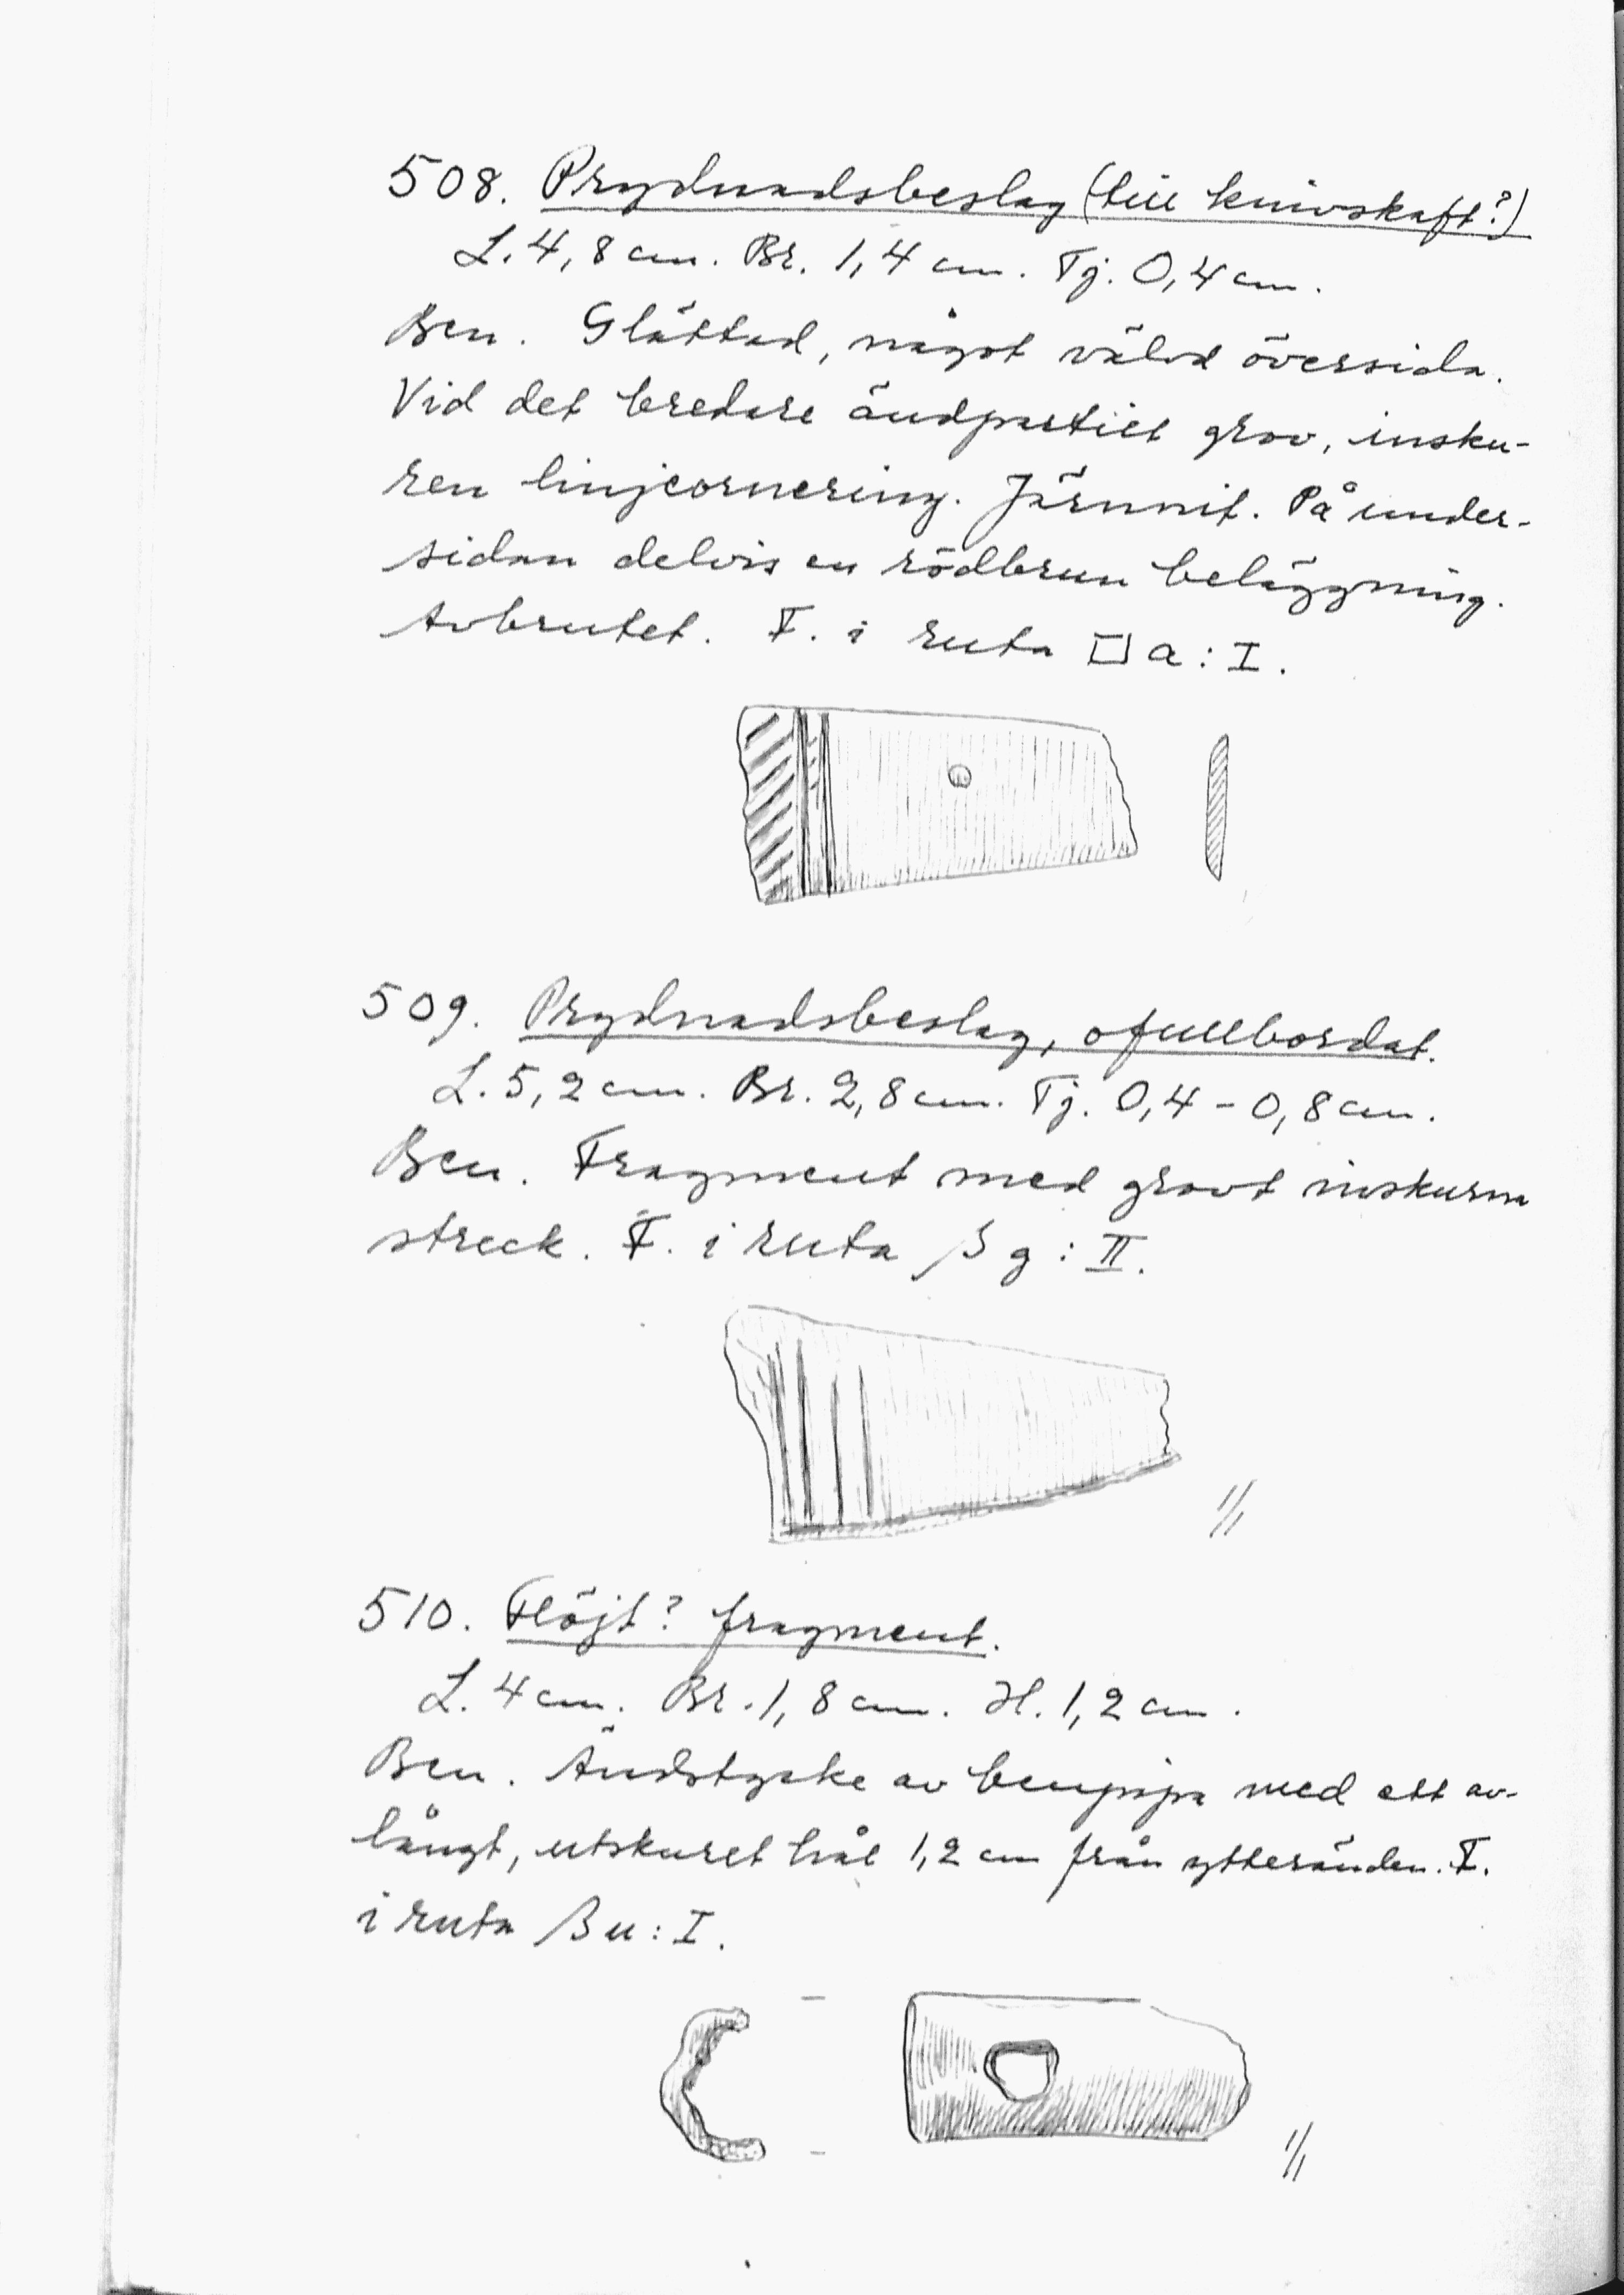 508. Prydnadsbeslag (till knivskaft?)
L. 4,8 cm. Br. 1,4 cm. Tj. 0,4 cm.
Ben. Glättad, något välvd översida.
Vid det bredare ändpartiet grov, insku-
ren linjeornering. Järnnit. På under-
sidan delvis en rödbrun beläggning.
Avbrutet. F. i ruta □ a : I.
509. Prydnadsbeslag, ofullbordat.
L. 5,2 cm. Br. 2,8 cm. Tj. 0,4 - 0,8 cm.
Ben. Fragment med grovt inskurna
streck. F. i ruta β g : II.
1/1
510. Flöjt? fragment.
L. 4 cm. Br. 1,8 cm. H. 1,2 cm.
Ben. Ändstycke av benpipa med ett av-
långt, utskuret hål 1,2 cm från ytteränden. F.
i ruta β u : I.
1/1